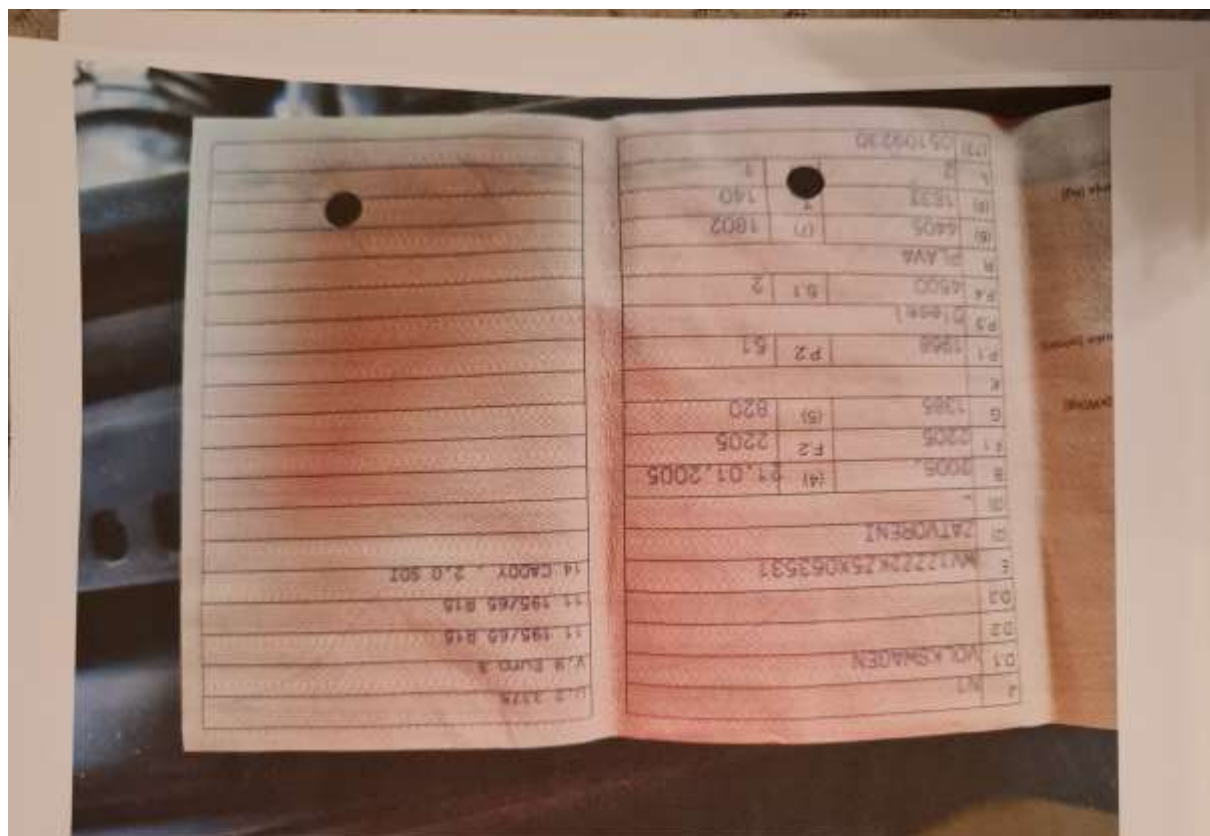 J N1
D.1 VOLKSWAGEN
D.2
D.3
E WV1ZZZ2KZ5X063531
(2) ZATVORENI
(3) -
B 2005. (4) 21.01.2005
F.1 2205 F.2 2205
G 1385 (5) 820
K
P.1 1968 P.2 51
P.3 Diesel
P.4 4500 S.1 2
R PLAVA
(6) 4405 (7) 1802
(8) 1833 T 140
L 2 1
(13) 05109230
U.2 3375
V.9 Euro 3
11 195/65 R15
11 195/65 R15
14 CADDY , 2.0 SDI